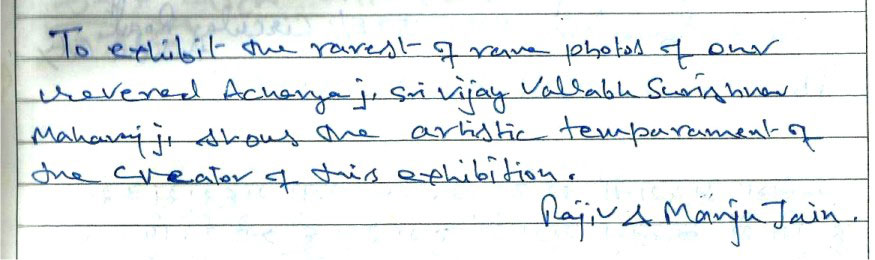 To exhibit the rarest of rare photos of our
revered Acharya ji Sri Vijay Vallabh Surishwar
Maharaj ji shows the artistic temparament of
the creator of this exhibition.
Rajiv & Manju Jain.